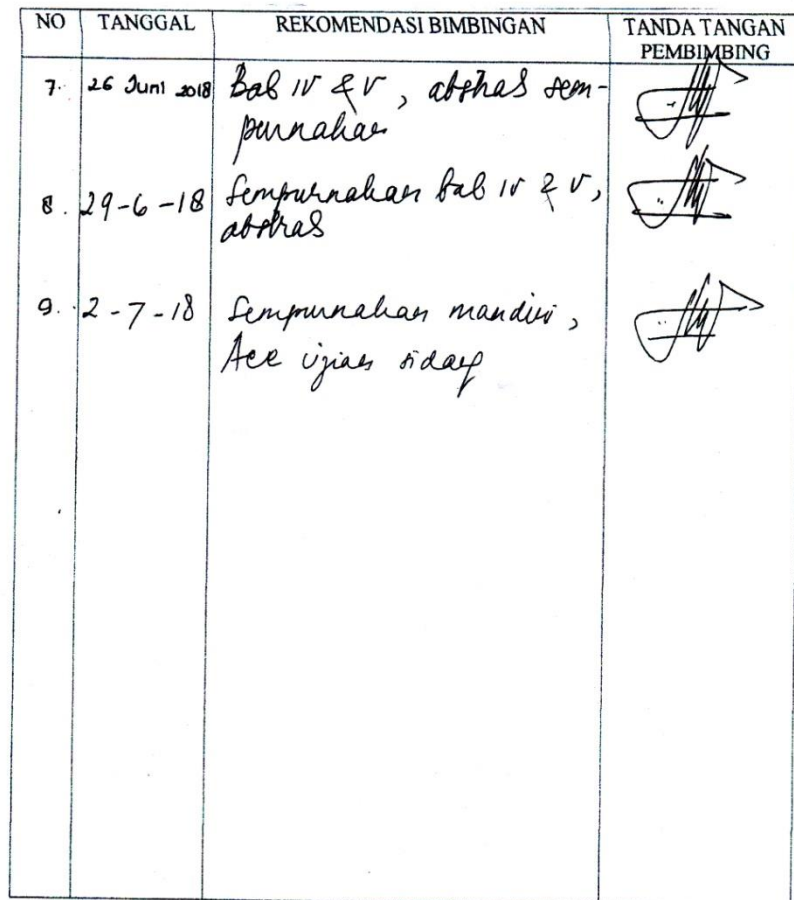 NO TANGGAL REKOMENDASI BIMBINGAN TANDA TANGAN
PEMBIMBING
7. 26 Juni 2018 Bab IV & V, abstrak sem-
purnakan
8. 29-6-18 Sempurnakan bab IV & V,
abstrak
9. 2-7-18 Sempurnakan mandiri,
Acc ujian sidang